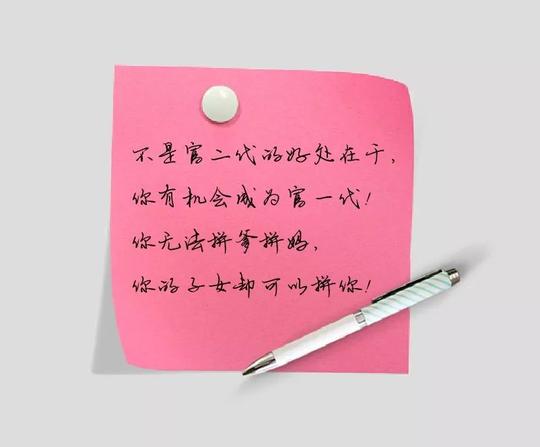 不是富二代的好处在于，
你有机会成为富一代！
你无法拼爹拼妈，
你的子女却可以拼你！